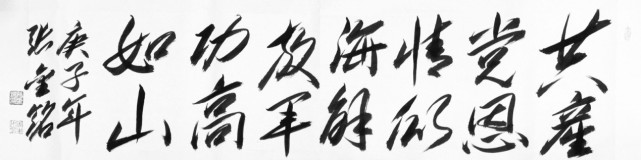 共產
党恩
情似
海解
放军
功高
如山
庚子年
张金铭